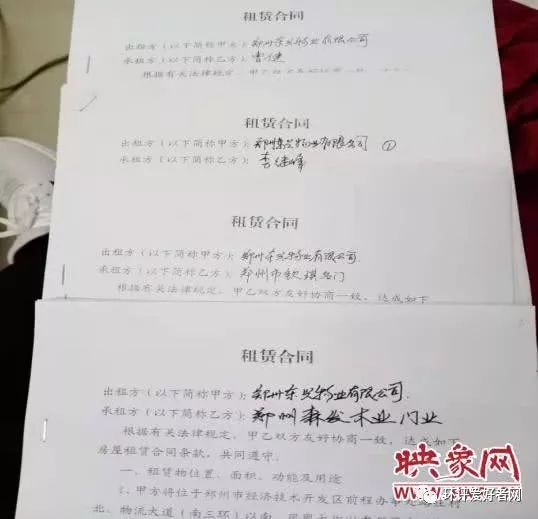 租赁合同
出租方(以下简称甲方):郑州东兴物业有限公司
承租方(以下简称乙方):曹健
根据有关法律规定,甲乙双方友好协商一致,
租赁合同
出租方(以下简称甲方):郑州东兴物业有限公司 ①
承租方(以下简称乙方):李继峰
租赁合同
出租方(以下简称甲方):郑州东兴物业有限公司
承租方(以下简称乙方):郑州市钦琪名门
根据有关法律规定,甲乙双方友好协商一致,达成如下
租赁合同
出租方(以下简称甲方):郑州东兴物业有限公司.
承租方(以下简称乙方):郑州森发木业门业
根据有关法律规定,甲乙双方友好协商一致,达成如下
房屋租赁合同条款,共同遵守。
一、租赁物位置、面积、功能及用途
1、甲方将位于郑州市经济技术开发区前程办事处
北、物流大道(南三环)以南、
映象网
WWW.HNR.CN
环评爱好者网